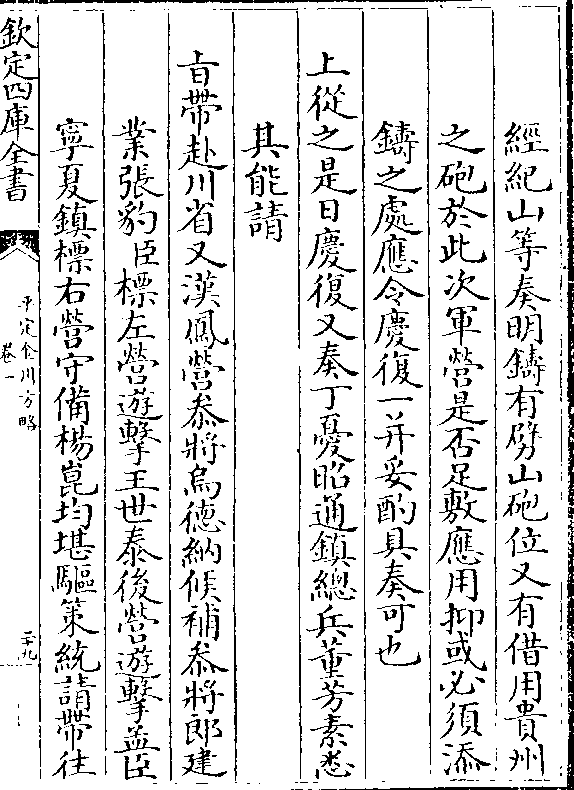 經紀山等奏明鑄有劈山砲位又有借用貴州
之砲於此次軍營是否足敷應用抑或必須添
鑄之處應令慶復一并妥酌具奏可也
上從之是日慶復又奏丁憂昭通鎮總兵董芳素悉
其能請
旨帶赴川省又漢鳳營叅將烏德納候補叅將郎建
業張豹臣標左營遊擊王世泰後營遊擊孟臣
寧夏鎮標右營守備楊崑均堪驅策統請帶往
欽定四庫全書
平定金川方略
卷一
二十九